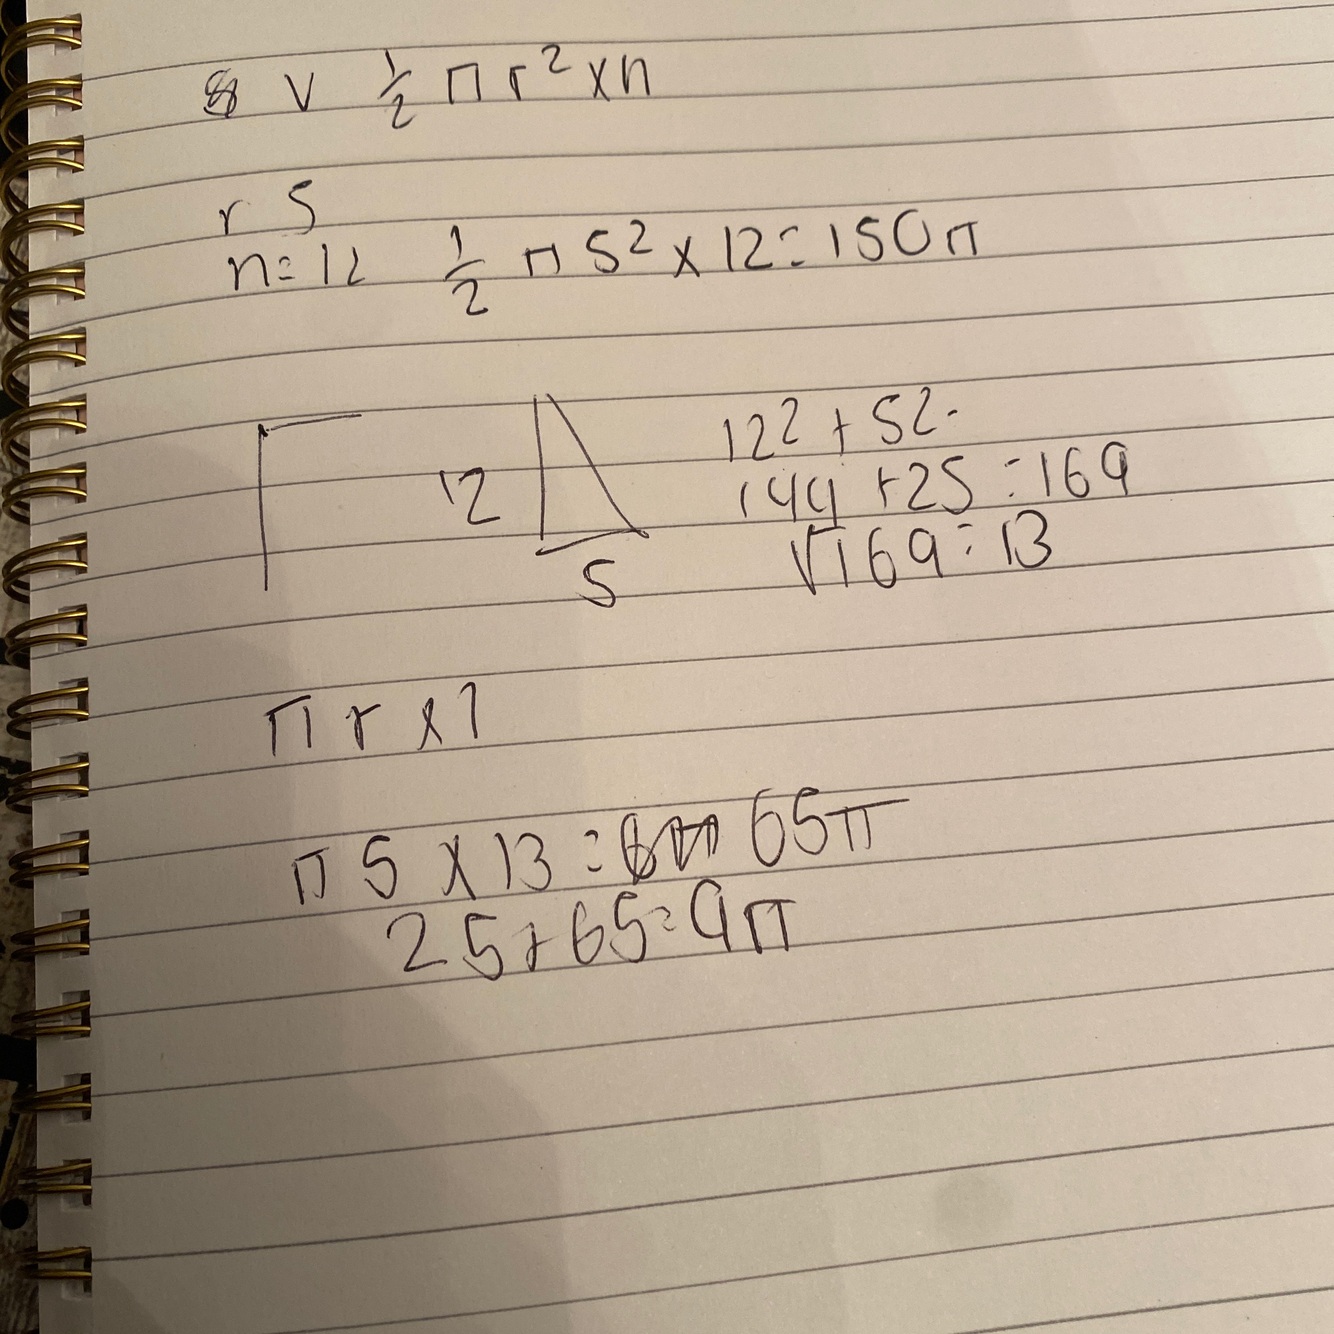 V ½ π r² x h
r 5
h = 12 ½ π 5² x 12 = 150π
12 5
12² + 5²
144 + 25 = 169
√169 = 13
π r x l
π 5 x 13 = 65π
25 + 65 = 9π